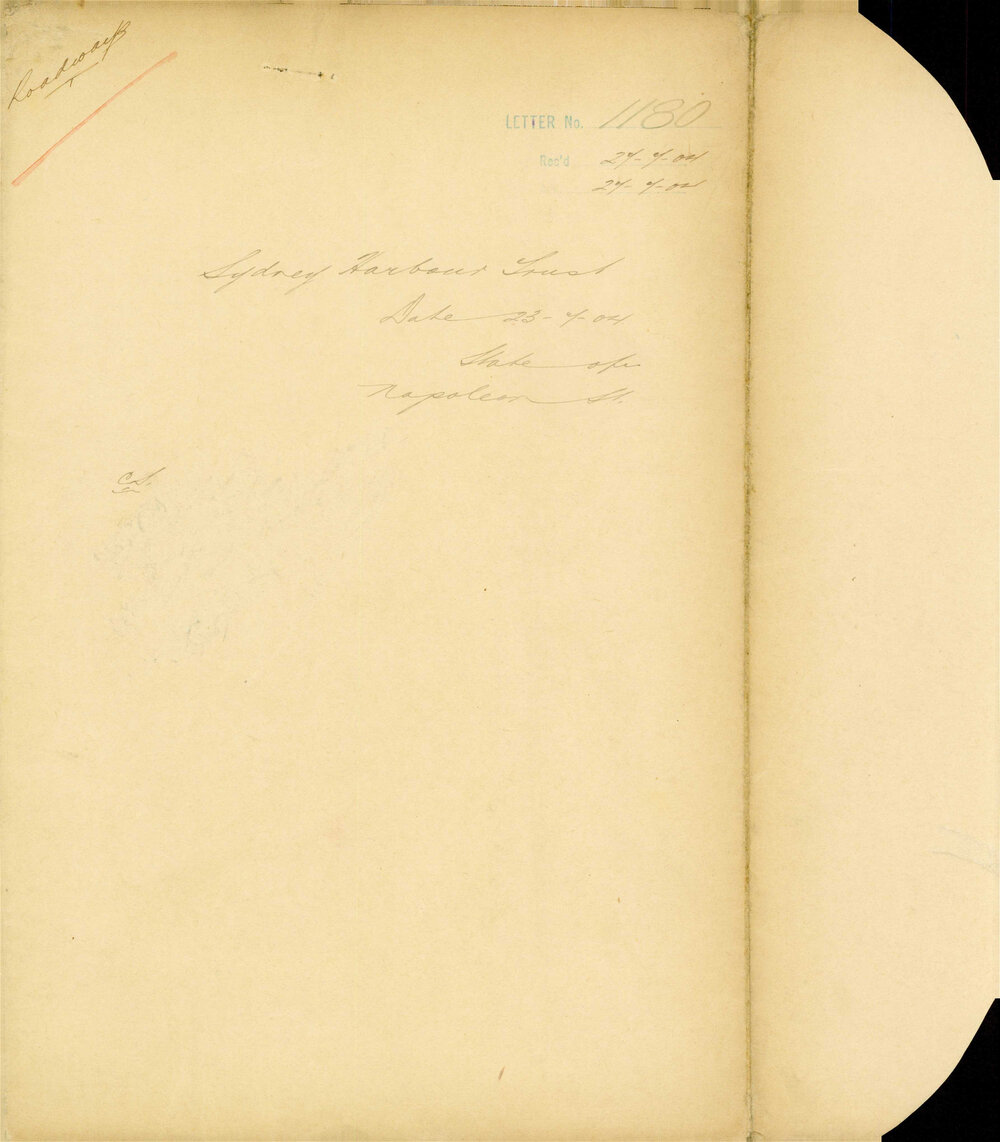 Roadways
LETTER No. 1180
Rec'd 27-7-04
27-7-04
Sydney Harbour Trust
Date 23-7-04
State of
Napoleon St.
C.S.